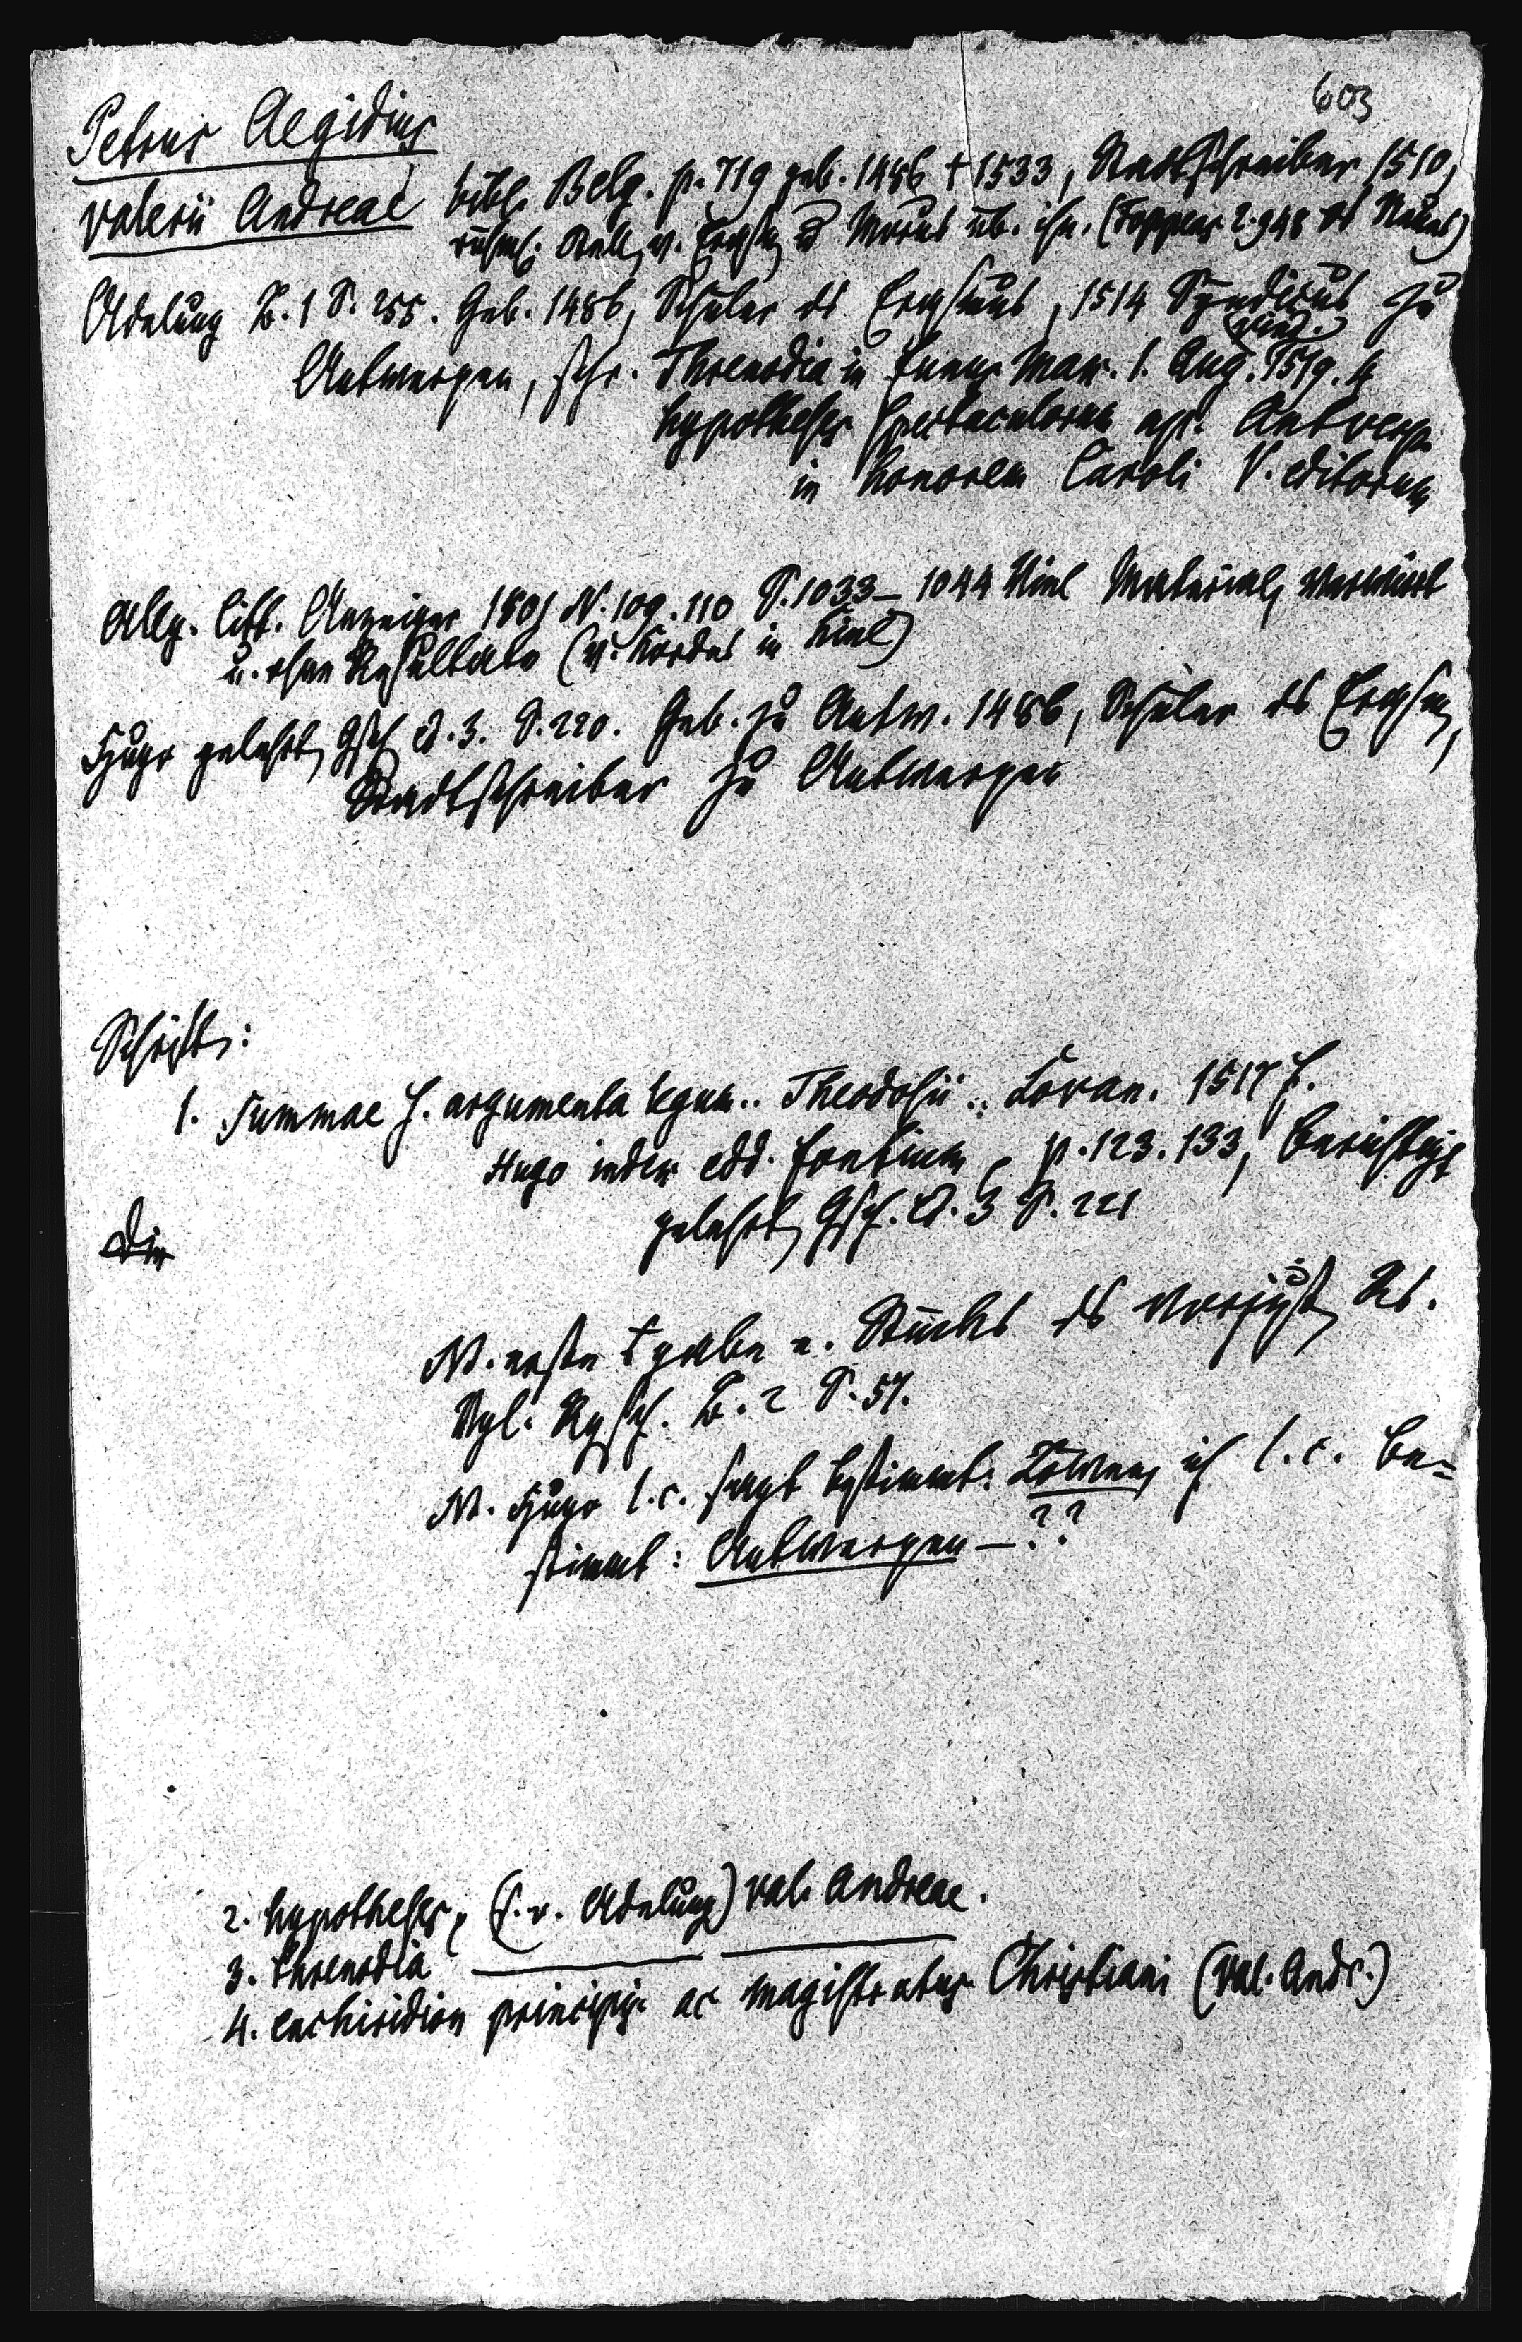 603
Petrus Aegidius
Valerii Andreae bibl. Belg. p. 719 geb. 1486 † 1533, Stadtschreiber 1510,
rühml. Stell. v. Erasm. u Morus üb. ihn. (Foppens 2. 948 )
Adelung B. 1 S. 255. Geb. 1486, Schüler ds Erasmus, 1514 Syndicus zu
Antwerpen, schr. Threnodia in funus Max. 1. Aug. 1519. 4
hypotheses spectaculorum Antverp.
in honorem Caroli V. editorum
Allg. litt. Anzeiger 1801 N. 109. 110 S. 1033–1044 Viel Material, verwirrt
u. ohne Resultate (v. Kordes in Kiel)
Hugo gelehrt. Gsch. A. 3. S. 220. Geb. zu Antw. 1486, Schüler ds Erasm.,
Stadtschreiber zu Antwerpen
Schrift.:
1. Summae s. argumenta legum.. Theodosii .. Lovan. 1517 f.
Hugo index edd. fontium, p. 123. 133, berichtigt
gelehrt. Gsch. A. 3 S. 221
Die
N. erste gabe e. Stücks ds vorjust. Rs.
Vgl. Rgsch. B. 2 S. 57.
N. Hugo l. c. sagt bestimmt: Löwen, ich l. c. be-
stimmt: Antwerpen – ??
2. hypotheses, (s. o. Adelung) Val. Andreae.
3. threnodia
4. enchiridion principis ac magistratus Christiani (Val. Andr.)